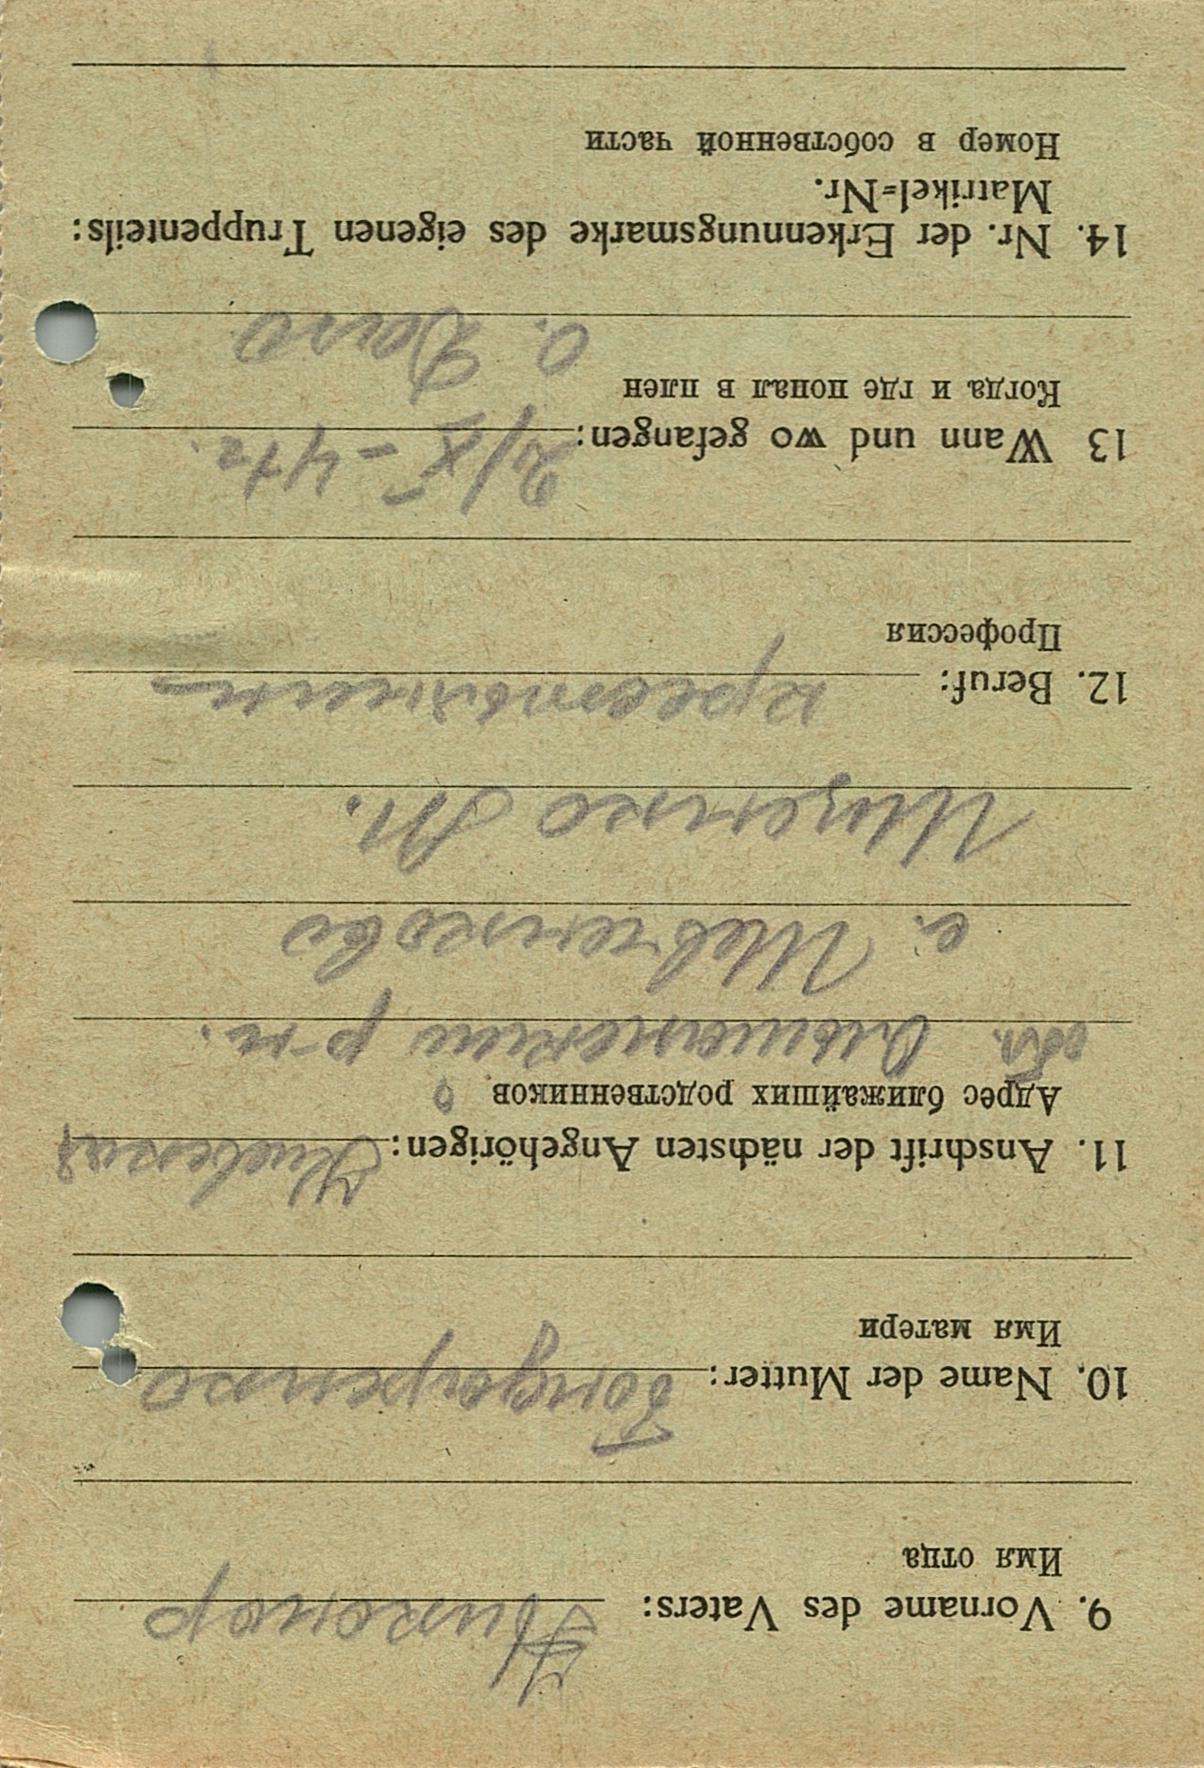 9. Vorname des Vaters: Никонор
Имя отца
10. Name der Mutter: Бондаренко
Имя матери
11. Anschrift der nächsten Angehörigen: Киевская
Адрес ближайших родственников
обл. Ольшанский р-н.
с. Шевченково
Ищенко М.
12. Beruf: крестьянин
Профессия
13 Wann und wo gefangen: 2/X-41г.
Когда и где попал в плен
о.
14. Nr. der Erkennungsmarke des eigenen Truppenteils:
Matrikel=Nr.
Номер в собственной части